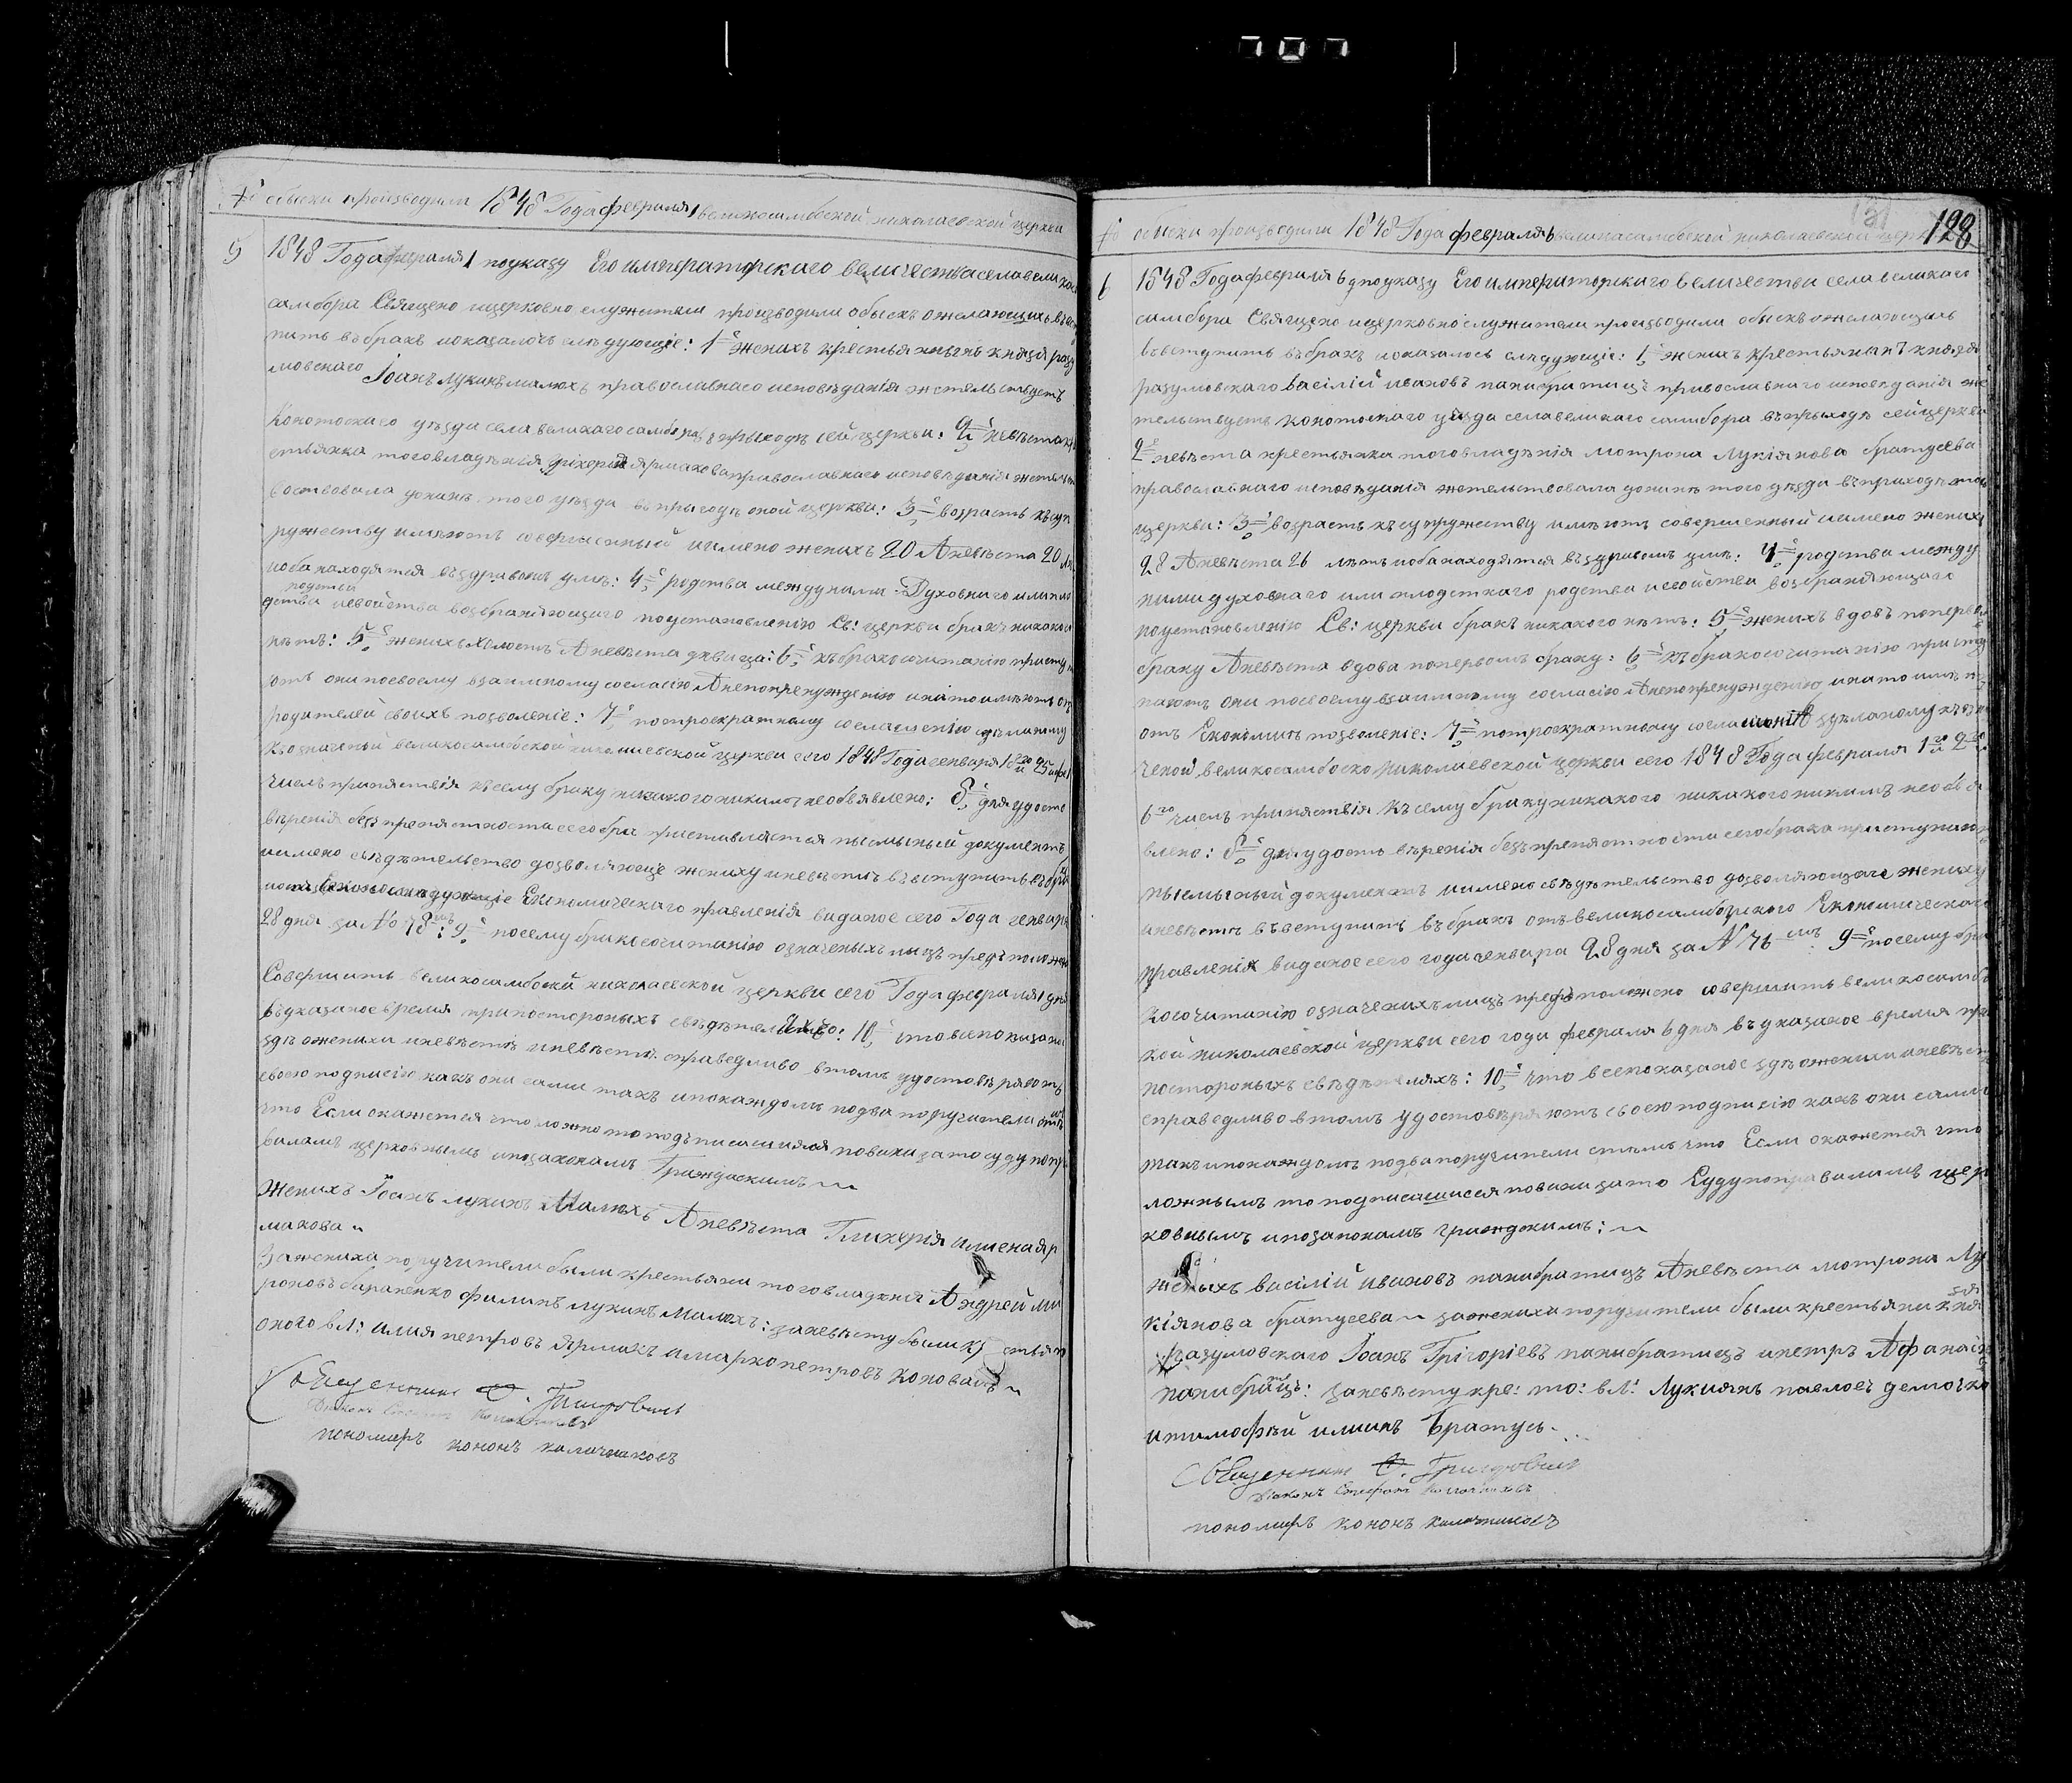 обыски произзводили 1848 Года февраля 1 великосамбоской николаевской церкви
5 1848 Года февраля 1 поуказу Его императорскаго величества села великаго
самбора Священо ицерковно служители произзводили обыскъ ожелающихъ въвсту
пить въбракъ иоказалось следующіе: 1е женихъ крестьянинъ князя разу
мовскаго Іоанъ лукинъ малюхъ православнаго исповѣданія жительствуетъ
Конотоскаго уѣзда села великаго самбора въ прыходѣ сей церкви: 2е невѣста кр
стьянка тоговладѣнія гликерия ярмакова православнаго исповѣданія жительст
вовала донинѣ того уѣзда въ прыходѣ оной церкви: 3е возрастъ къ суп
ружеству имѣютъ совершенный иимено женихъ 20 Аневѣста 20 лѣ
иоба находятся въздравомъ умѣ: 4е родства междуними Духовнаго или пло
родства
дства исвойства возбраняющаго поустановленію Св: церкви бракъ никакого
нѣтъ: 5е женихъ холостъ Аневѣста дѣвица: 6е къ бракосочитанію приступа
ютъ они посвоему взаимному согласію Анепопринужденію инато имѣютъ отъ
родителей своихъ позволеніе: 7е потроекратному согласленію зделаному
Въозначеной великосамбоской николаевской церкви сего 1848 Года генваря 18го 25 и фев 1
числъ припятствія ксему браку никакого никимъ необъявлено: 8е для удосто
вѣренія безъ препятности сегобра приставляется писмыный документъ
иимено свѣдѣтельство дозволяюще жениху иневѣстѣ въвступитъ въ бра
Економическаго правленія виданое сего Года генваря
28 дня за № 78мъ: 9е посему бракосочитанію означеныхъ лицъ предъположено
Совершить великосамбоской николаевской церкви сего Года февраля 1 дня
въуказаное время припостороныхъ свѣдѣтеляхъ: 10е что все показано
здѣ оженихи иневѣстѣ иневѣстѣ справедливо втомъ удостовѣряютъ
своею подписію какъ они сами такъ ипокаждомъ подва поручители стѣмъ
что Если окажется что ложно то подписавшияся повини зато суду попра
виламъ церковнымъ ипозаконамъ Гражданскимъ
Женихъ Іоанъ лукинъ Малюхъ Аневѣста Гликерія илиена яр
макова
Зажениха поручители были крестьяни тоговладѣнія Андрей ми
роновъ бараненко филипъ лукинъ Малюхъ: заневѣсту были кр стьяне
оного вл: илия петровъ Ярмакъ имарко петровъ коноваль
Священникъ Ѳ. Григровичъ
Діаконъ Стефанъ
пономаръ кононъ калачниковъ
128
обыски произзводили 1848 Года февраля 6 великасамбоской николаевской церк
6 1848 Года февраля 6 д поуказу Его императорскаго величества села великаго
самбора Священо ицерковнослужители произзводили обыскъ ожелающихъ
въвступить въбракъ иоказалось следующіе: 1е женихъ крестьянинъ князя
разумовскаго василій ивановъ панибратицъ православнаго исповѣданія жи
тельствуетъ конотоскаго уѣзда села великаго самбора въпрыходѣ сей церкви
2е невѣста крестьянка тоговладѣнія мотрона лукіянова братусева
православнаго исповѣданія жительствовала донинѣ того уѣзда въприходѣ той
церкви: 3е возрастъ къ супружеству имѣютъ совершенный иимено женихъ
28 Аневѣста 26 лѣтъ иоба находятся въздравомъ умѣ: 4е родства между
ними духовнаго или плодскаго родства исвойства возбраняющаго
поустановленію Св: церкви бракъ никакого нѣтъ: 5е женихъ вдовъ поперво
браку Аневѣста вдова попервомъ браку: 6е къ бракосочитанію присту
паютъ они посвоему взаимному согласію Анепопринужденію инато имѣ
отъ Економіи позволеніе: 7е потроекратному согла зделаному въозн
ченой великосамбоско николаевской церкви сего 1848 Года февраля 1го и 2го
6го числъ припятствія къ сему браку никакого никакого никимъ необъя
влено: 8е для удостовѣренія безъпрепятности сегобрака приступают
писмыный документъ иимено свѣдѣтельство дозволяющаго жениху
иневѣстѣ въвступитъ въбракъ отъ великосамборского Економическаго
правленія виданое сего года генвара 28 дня за № 76мъ: 9е посему бра
косочитанію означенихъ лицъ предъположено совершить великосамбо
кой николаевской церкви сего года февраля 6 дня въуказаное время при
постороныхъ свѣдѣтеляхъ: 10е что всепоказаное здѣ оженихи иневѣст
справедливо втомъ удостовѣряютъ своею подписію какъ они сами
такъ ипокаждомъ подва поручители стѣмъ что Если окажется что
ложнымъ то подписавшисея повини зато Суду поправиламъ цер
ковнымъ ипозаконамъ граждскимъ:
женихъ василій ивановъ панибратицъ Аневѣста мотрона Лу
кіянова братусева зажениха поручители были крестьяни кня
зя
разумовскаго Іоанъ Грігоріевъ панибратицъ ипетръ Афанасіе
панибратицъ: заневѣсту кре: то: вл: Лукиянъ павловъ демочко
итимофѣй илиинъ Братусь
Священникъ Ѳ. Григровичъ
Діаконъ Стефанъ
пономаръ кононъ калачниковъ